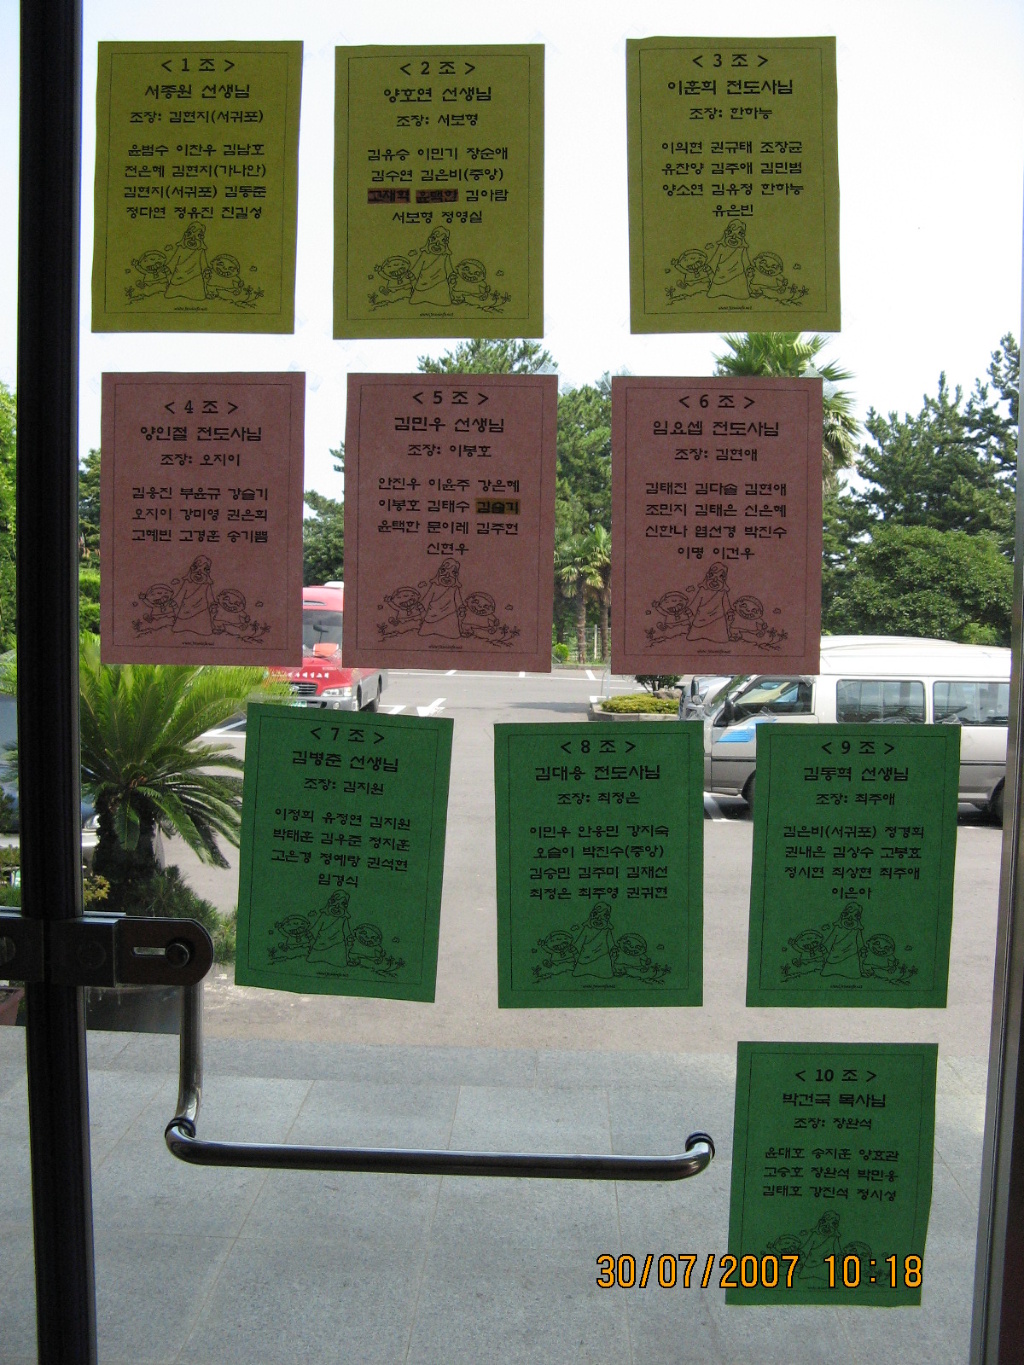 < 1 조 >
서종원 선생님
조장: 김현지(서귀포)
윤범수 이찬우 김남호
전은혜 김현지(가나안)
김현지(서귀포) 김동준
정다연 정유진 진길성
< 2 조 >
양호연 선생님
조장: 서보형
김유승 이민기 장순애
김수연 김은비(중앙)
고재혁 윤택한 김아람
서보형 정영실
< 3 조 >
이훈희 전도사님
조장: 한하능
이의현 권규태 조장군
유찬양 김주애 김민범
양소연 김유정 한하능
유은빈
< 4 조 >
양인철 전도사님
조장: 오지이
김웅진 부윤규 강슬기
오지이 강미영 권은희
고혜빈 고경훈 송기쁨
< 5 조 >
김민우 선생님
조장: 이봉호
안진우 이윤주 강은혜
이봉호 김태수 김슬기
윤택한 문이레 김주현
신현우
< 6 조 >
임요셉 전도사님
조장: 김현애
김태진 김다솔 김현애
조민지 김태은 신은혜
신한나 엽선경 박진수
이명 이건우
< 7 조 >
김병춘 선생님
조장: 김지원
이정희 유정연 김지원
박태훈 김우준 정지훈
고은경 정예랑 권석현
임경식
< 8 조 >
김대웅 전도사님
조장: 최정은
이민우 안웅민 강지숙
오슬이 박진수(중앙)
김승민 김주미 김재선
최정은 최주영 권귀현
< 9 조 >
김동혁 선생님
조장: 최주애
김은비(서귀포) 정경희
권내은 김상수 고봉효
정시현 최상현 최주애
이은아
< 10 조 >
박건국 목사님
조장: 장완석
윤대호 송지훈 양효관
고승호 장완석 박민웅
김태호 강진석 정시성
30/07/2007 10:18